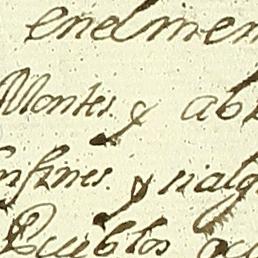 enelmen
Montes. y ab
nfines. y nalg
Pueblos